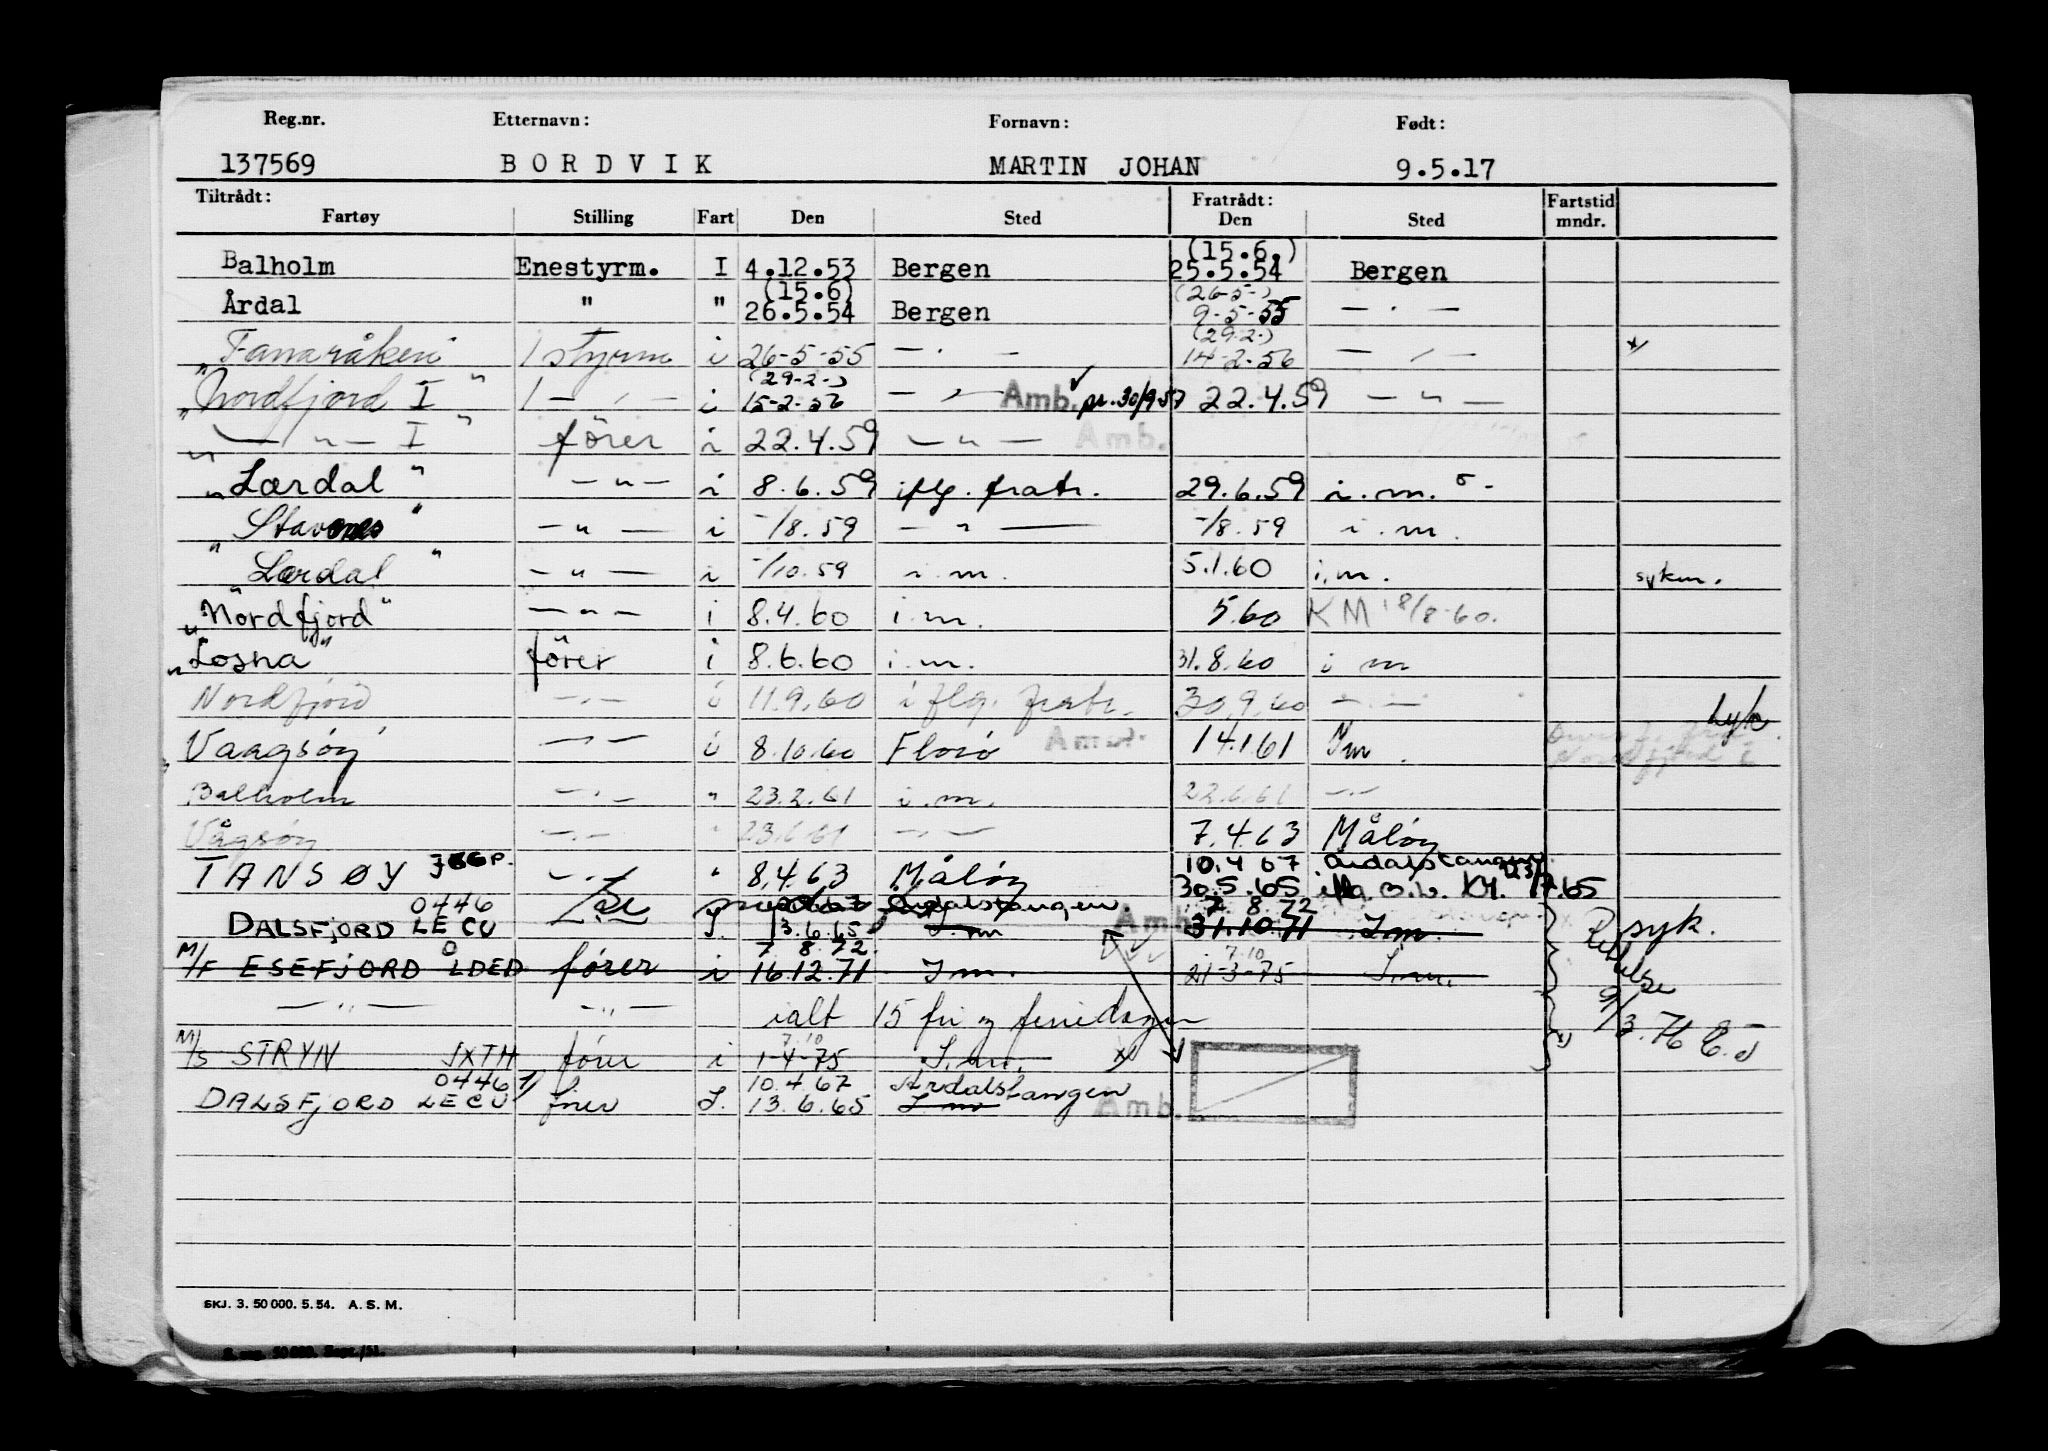 Reg.nr. Etternavn: Fornavn: Født:
137569 BORDVIK MARTIN JOHAN 9.5.17
Tiltrådt: Fratrådt:
Fartøy Stilling Fart Den Sted Den Sted Fartstid mndr.
(15.6.)
Balholm Enestyrm. I 4.12.53 Bergen 25.5.54 Bergen
(15.6) (26-5-)
Årdal " " 26.5.54 Bergen 9-5-55 — . —
(29-2-)
"Fanaråken" 1 styrm i 26-5-55 — . — 14-2-56 — . — x/
(29-2-)
"Nordfjord I" 1 — . — i 15-2-56 — . — Amb. pr. 30/9-57 22.4.59 — " —
" — " — I " fører i 22.4.59 — " — Amb.
"Lærdal" — " — i 8.6.59 iflg. fratr. 29.6.59 i.m.
"Stavenes" — " — i -/8.59 — " — -/8.59 i.m.
"Lærdal" — " — i -/10.59 i.m. 5.1.60 i.m. sykm.
"Nordfjord" — " — i 8.4.60 i.m. 5.60 KM 18/8-60.
"Losna" fører i 8.6.60 i.m. 31.8.60 i m
Nordfjord — . — i 11.9.60 iflg. fratr. 30.9.60 — . —
Vaagsøy — " — i 8.10.60 Florø Amb. 14.1.61 Im. syk.
Nordfjord
Balholm — . — " 23.2.61 i.m. 22.6.61 — . —
Vågsøy — . — " 23.6.61 — . — 7.4.63 Måløy
10.4 67 Årdalstangen
TANSØY — . — " 8.4.63 Måløy 30.5.65
0446 Årdalstangen. 7. 8.72
DALSFJORD LECU I. 13.6.65 I.m Amb. 31.10.71 I.m. syk.
7 8.72 7.10
M/F ESEFJORD LDED fører i 16.12.71 I m. 21-3-75 I.m. Rettelse
— " — — " — ialt 15 fri og feriedager 9/3.76
7.10
M/S STRYN JXTH fører i 1-4-75 I.m. x/
0446 10.4.67 Årdalstangen
DALSFJORD LECU fører I. 13.6.65 I m Amb.
SKJ. 3. 50 000. 5. 54. A. S. M.